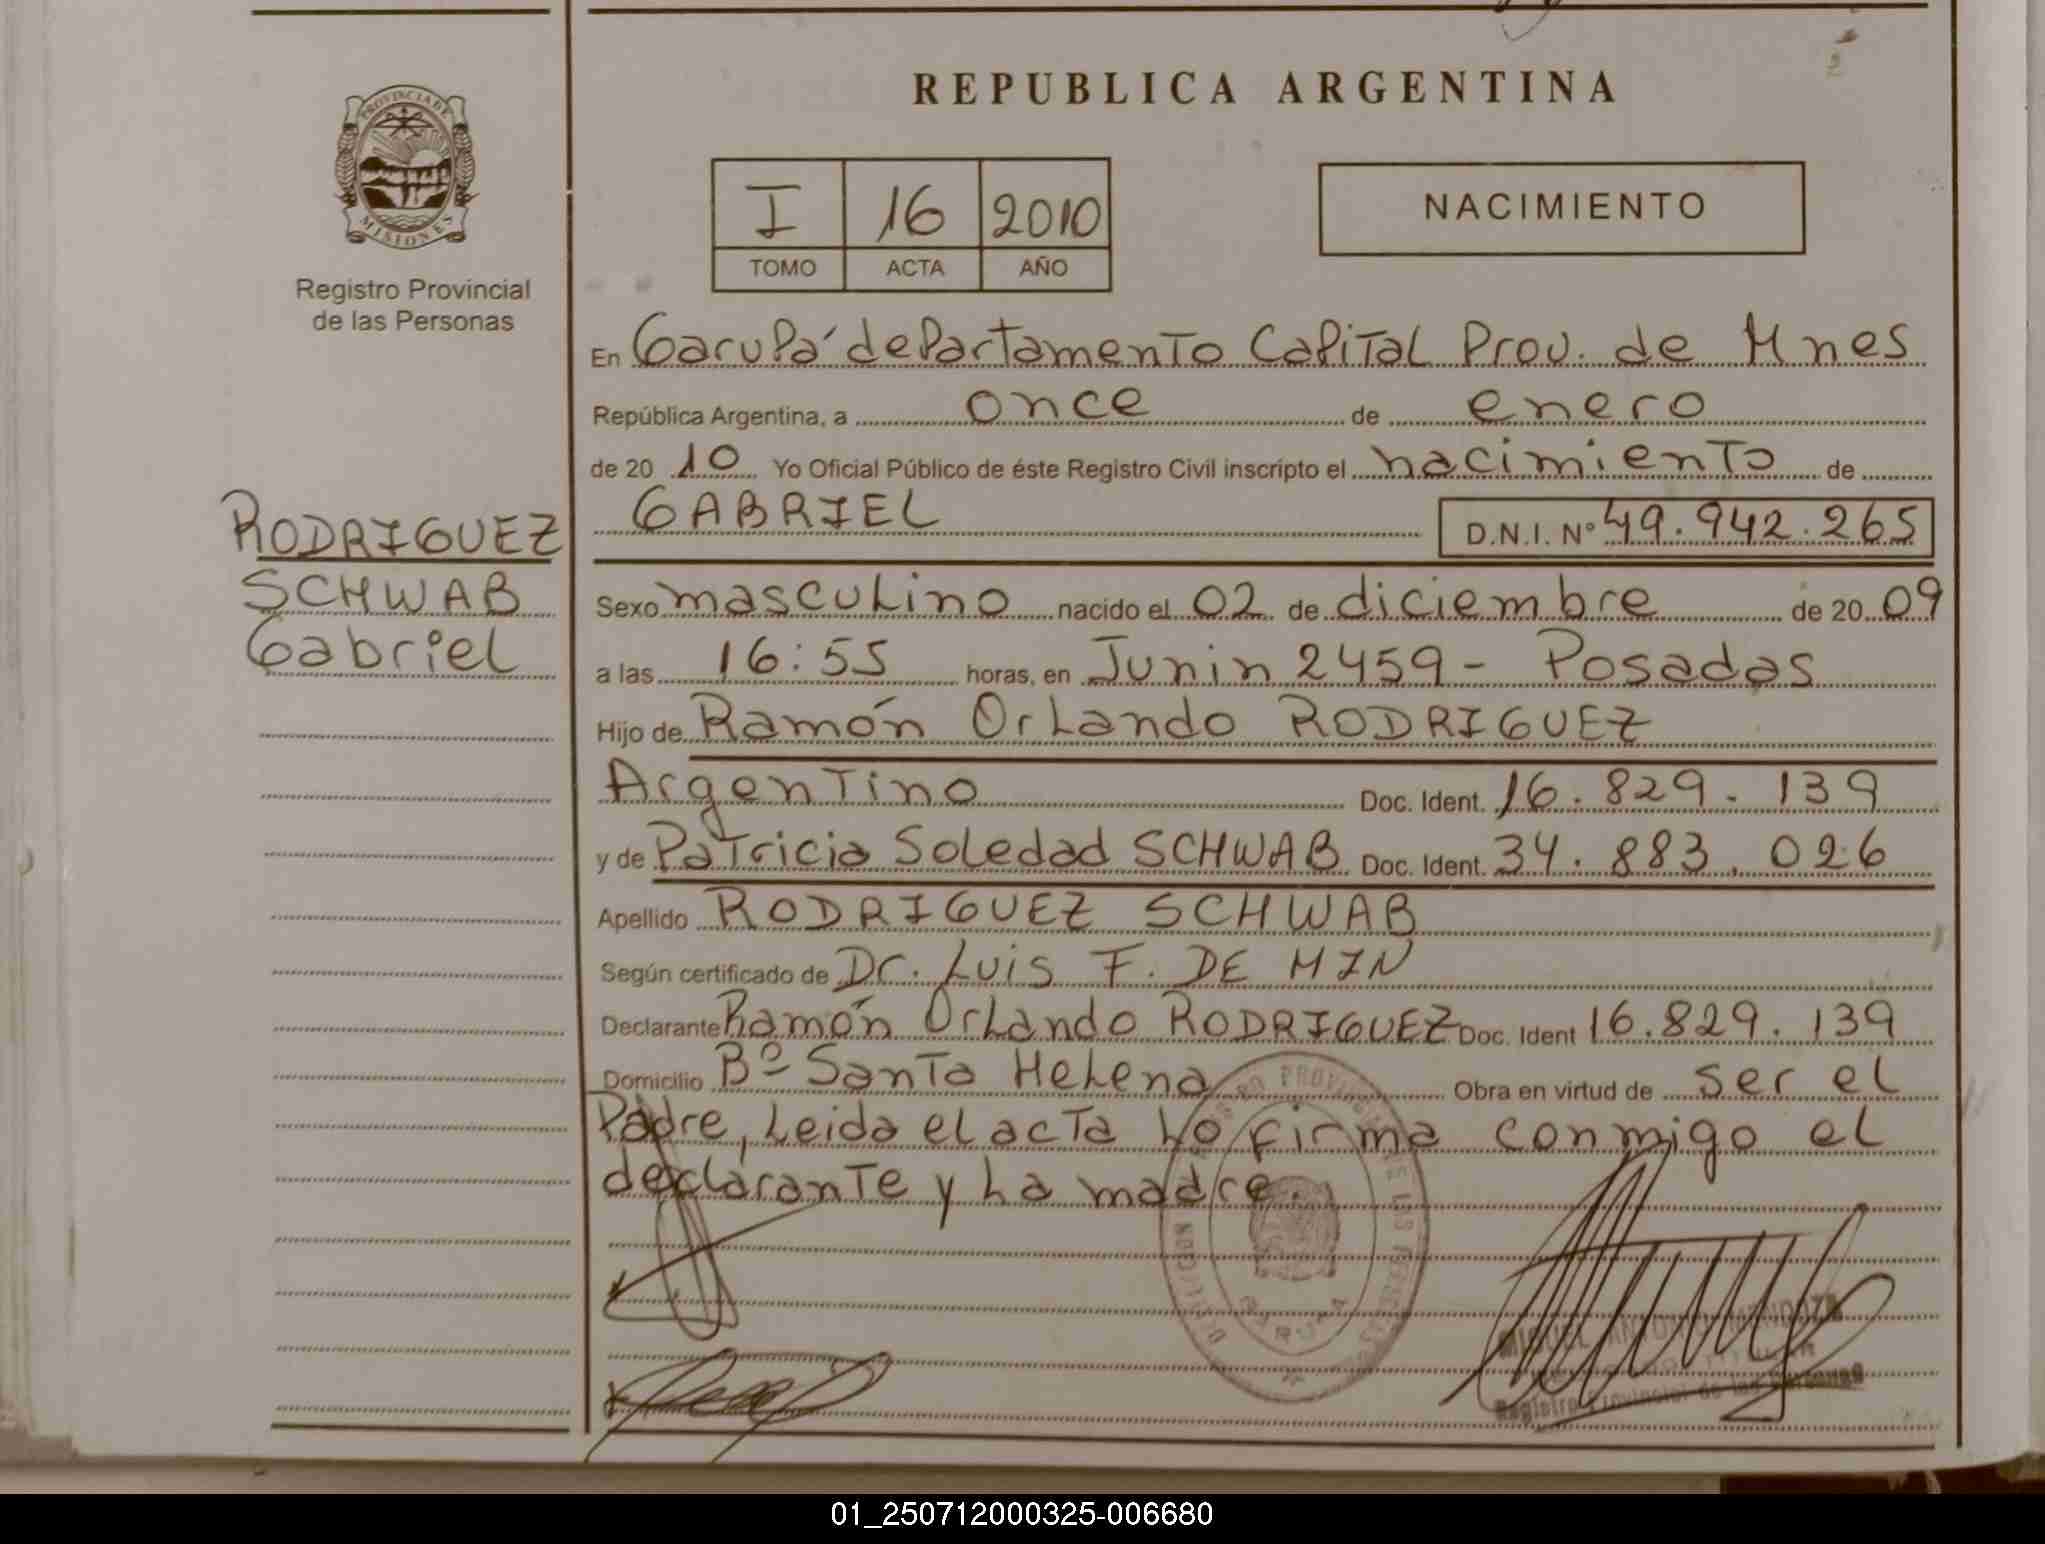 REPUBLICA ARGENTINA
PROVINCIA DE
MISIONES
Registro Provincial
de las Personas
I 16 2010
TOMO ACTA AÑO
NACIMIENTO
En Garupá departamento Capital Prov. de Mnes
República Argentina, a once de enero
de 20 10 Yo Oficial Público de éste Registro Civil inscripto el nacimiento de
GABRIEL D.N.I. Nº 49.942.265
RODRIGUEZ
SCHWAB
Gabriel
Sexo masculino nacido el 02 de diciembre de 20 09
a las 16:55 horas, en Junin 2459 - Posadas
Hijo de Ramón Orlando RODRIGUEZ
Argentino Doc. Ident. 16.829.139
y de Patricia Soledad SCHWAB Doc. Ident. 34.883.026
Apellido RODRIGUEZ SCHWAB
Según certificado de Dr. Luis F. DE MIN
Declarante Ramón Orlando RODRIGUEZ Doc. Ident 16.829.139
Domicilio Bº Santa Helena Obra en virtud de ser el
Padre, Leida el acta lo firma conmigo el
declarante y la madre.
GARUPA
MIGUEL ANTONIO MENDOZA
Registro Provincial de las Personas
01_250712000325-006680